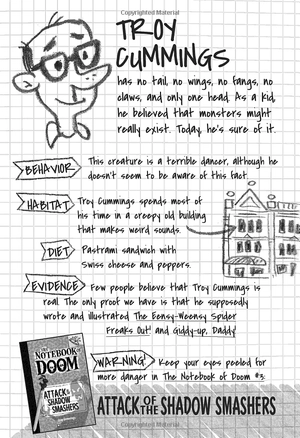 Copyrighted Material
TROY
CUMMINGS
has no tail, no wings, no fangs, no
claws, and only one head. As a kid,
he believed that monsters might
really exist. Today, he's sure of it.
BEHAVIOR
This creature is a terrible dancer, although he
doesn't seem to be aware of this fact.
HABITAT
Troy Cummings spends most of
his time in a creepy old building
that makes weird sounds.
DIET
Pastrami sandwich with
Swiss cheese and peppers.
EVIDENCE
Few people believe that Troy Cummings is
real. The only proof we have is that he supposedly
wrote and illustrated The Eensy-Weensy Spider
Freaks Out! and Giddy-up, Daddy!
THE NOTEBOOK OF
DOOM
ATTACK OF THE
SHADOW SMASHERS
WARNING!
Keep your eyes peeled for
more danger in The Notebook of Doom #3:
ATTACK OF THE SHADOW SMASHERS
Copyrighted Material